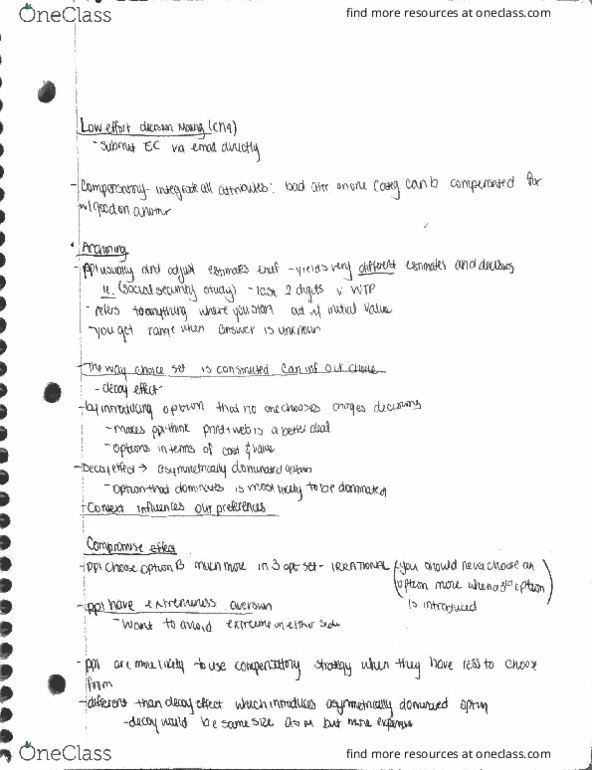 OneClass
find more resources at oneclass.com
Low effort decision Making (Ch9)
- Submit EC via email directly
- Compensatory - integrate all attributes: bad on one categ can b compensated for
w/ good on another
Anchoring
- ppl usually and adjust estimates - yields very different estimates and decisions
(social security study) - last 2 digits v WTP
- refers to anything where you start out w/ initial value
- you get range when answer is unknown
- The way choice set is constructed can inf our choice
- decoy effect -
- by introducing option that no one chooses changes decisions
- makes ppl think print + web is a better deal
- options in terms of cost & value
- Decoy effect → asymmetrically dominated option
- option that dominates is most likely to be dominated
- Context influences our preferences
Compromise effect
- ppl choose option B much more in 3 opt set - IRRATIONAL (you should never choose an
option more when a 3rd option
is introduced)
- ppl have extremeness aversion
- want to avoid extreme on either side
- ppl are more likely to use compensatory strategy when they have less to choose
from
- different than decoy effect which introduces asymmetrically dominated option
- decoy would be same size as M but more expensive
OneClass
find more resources at oneclass.com